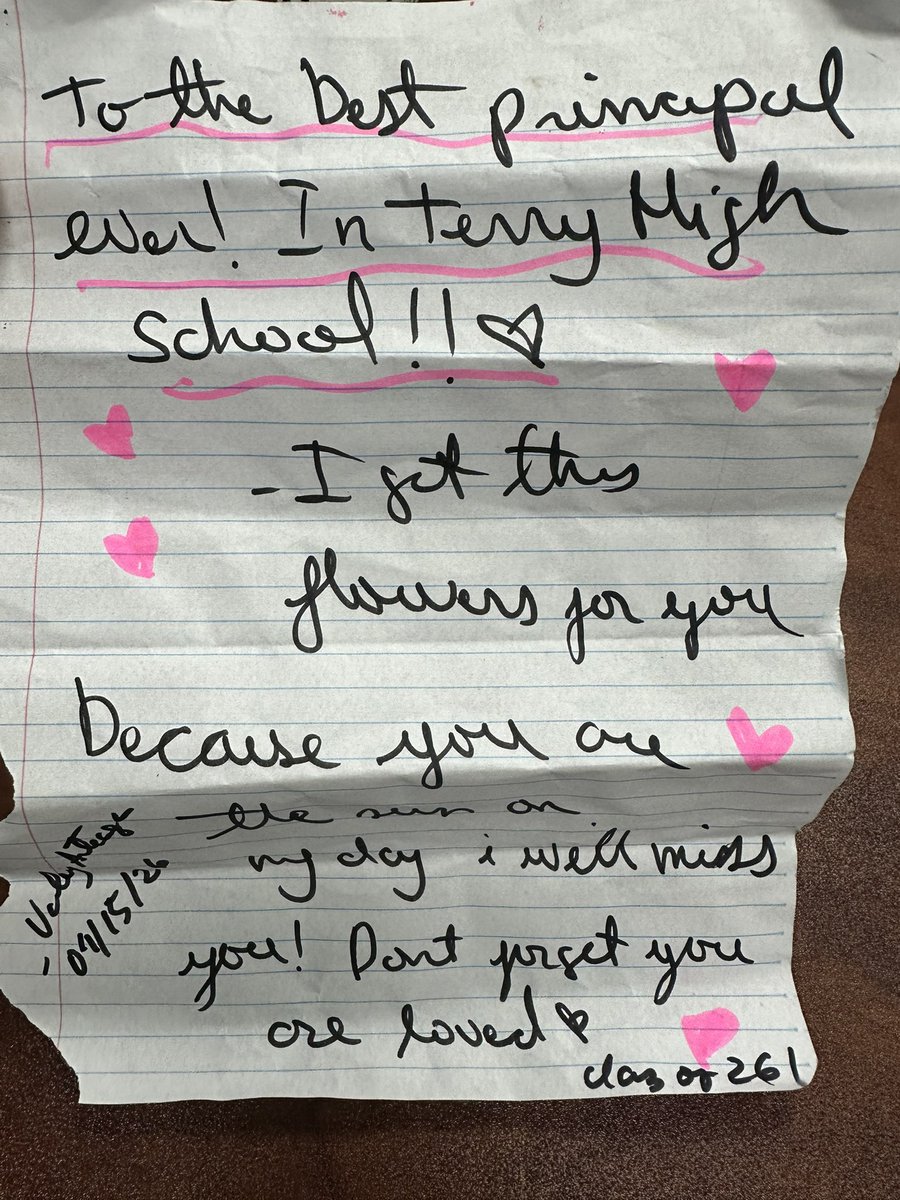 To the best principal
ever! In Terry High
School!! ♡
- I got this
flowers for you
because you are
the sun on
my day i well miss
you! Dont forget you
are loved ♡
class of 26!
/15/26